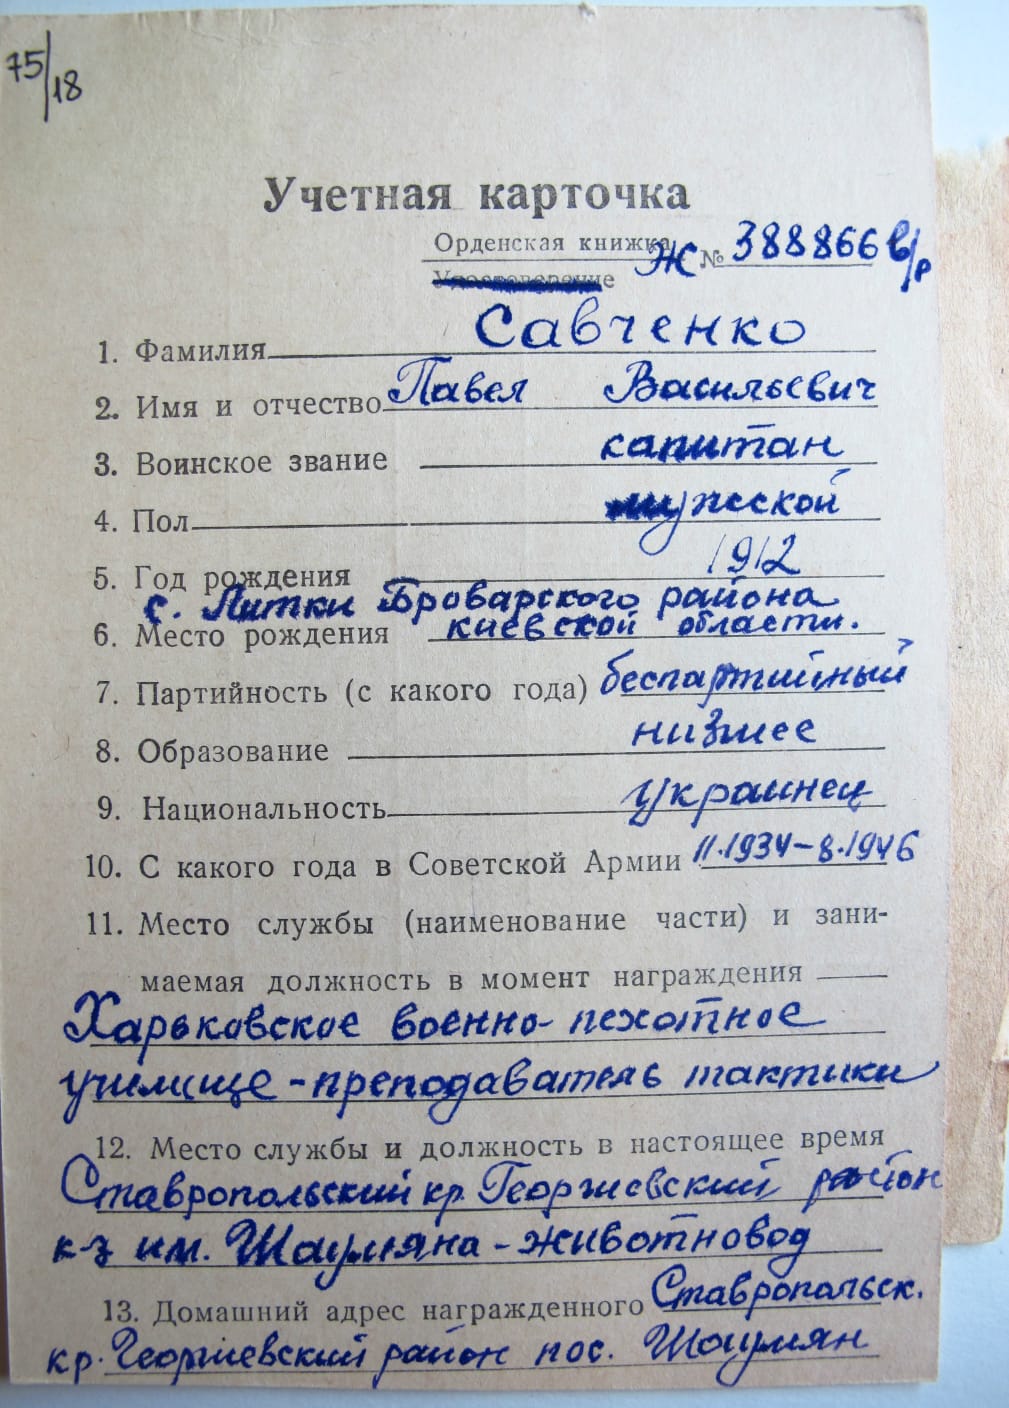 75/18
Учетная карточка
Орденская книжка Ж № 388866 в/р
Удостоверение
1. Фамилия Савченко
2. Имя и отчество Павел Васильевич
3. Воинское звание капитан
4. Пол мужской
5. Год рождения 1912
с. Литки Броварского района
6. Место рождения киевской области.
7. Партийность (с какого года) беспартийный
8. Образование низшее
9. Национальность украинец
10. С какого года в Советской Армии 11.1934-8.1946
11. Место службы (наименование части) и зани-
маемая должность в момент награждения
Харьковское военно-пехотное
училище - преподаватель тактики
12. Место службы и должность в настоящее время
Ставропольский кр. Георгиевский район
к-з им. Шаумяна - животновод
13. Домашний адрес награжденного Ставропольск.
кр. Георгиевский район пос. Шаумян